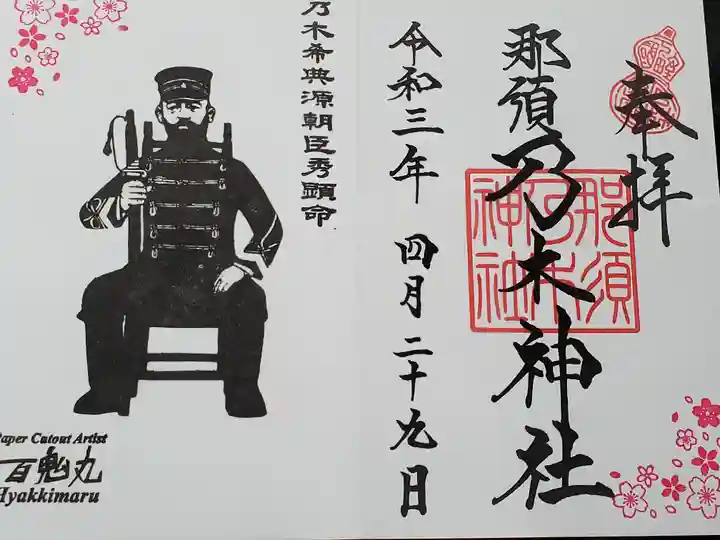 奉拝
那須乃木神社
那須乃木神社
令和三年 四月二十九日
乃木希典源朝臣秀顕命
Paper Cutout Artist
百鬼丸
Hyakkimaru